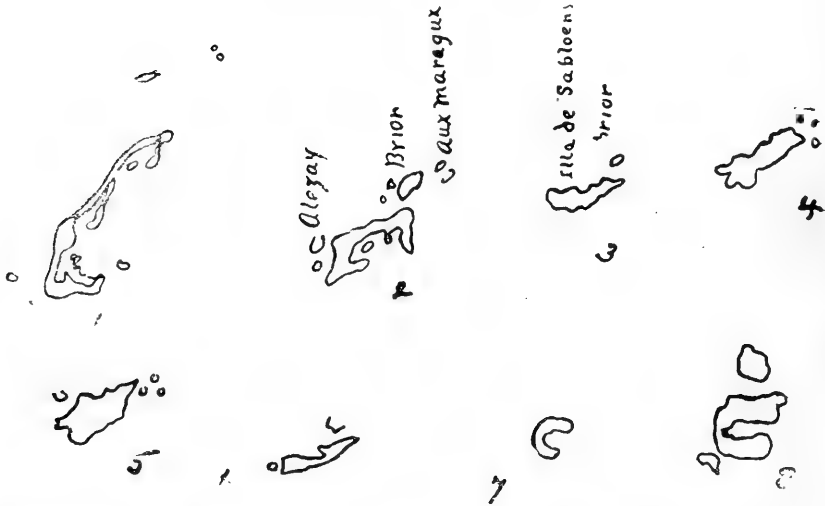 1
Alezay
Brior
aux maraqux
2
Illa de Sabloens
Brior
3
4
5
7
8